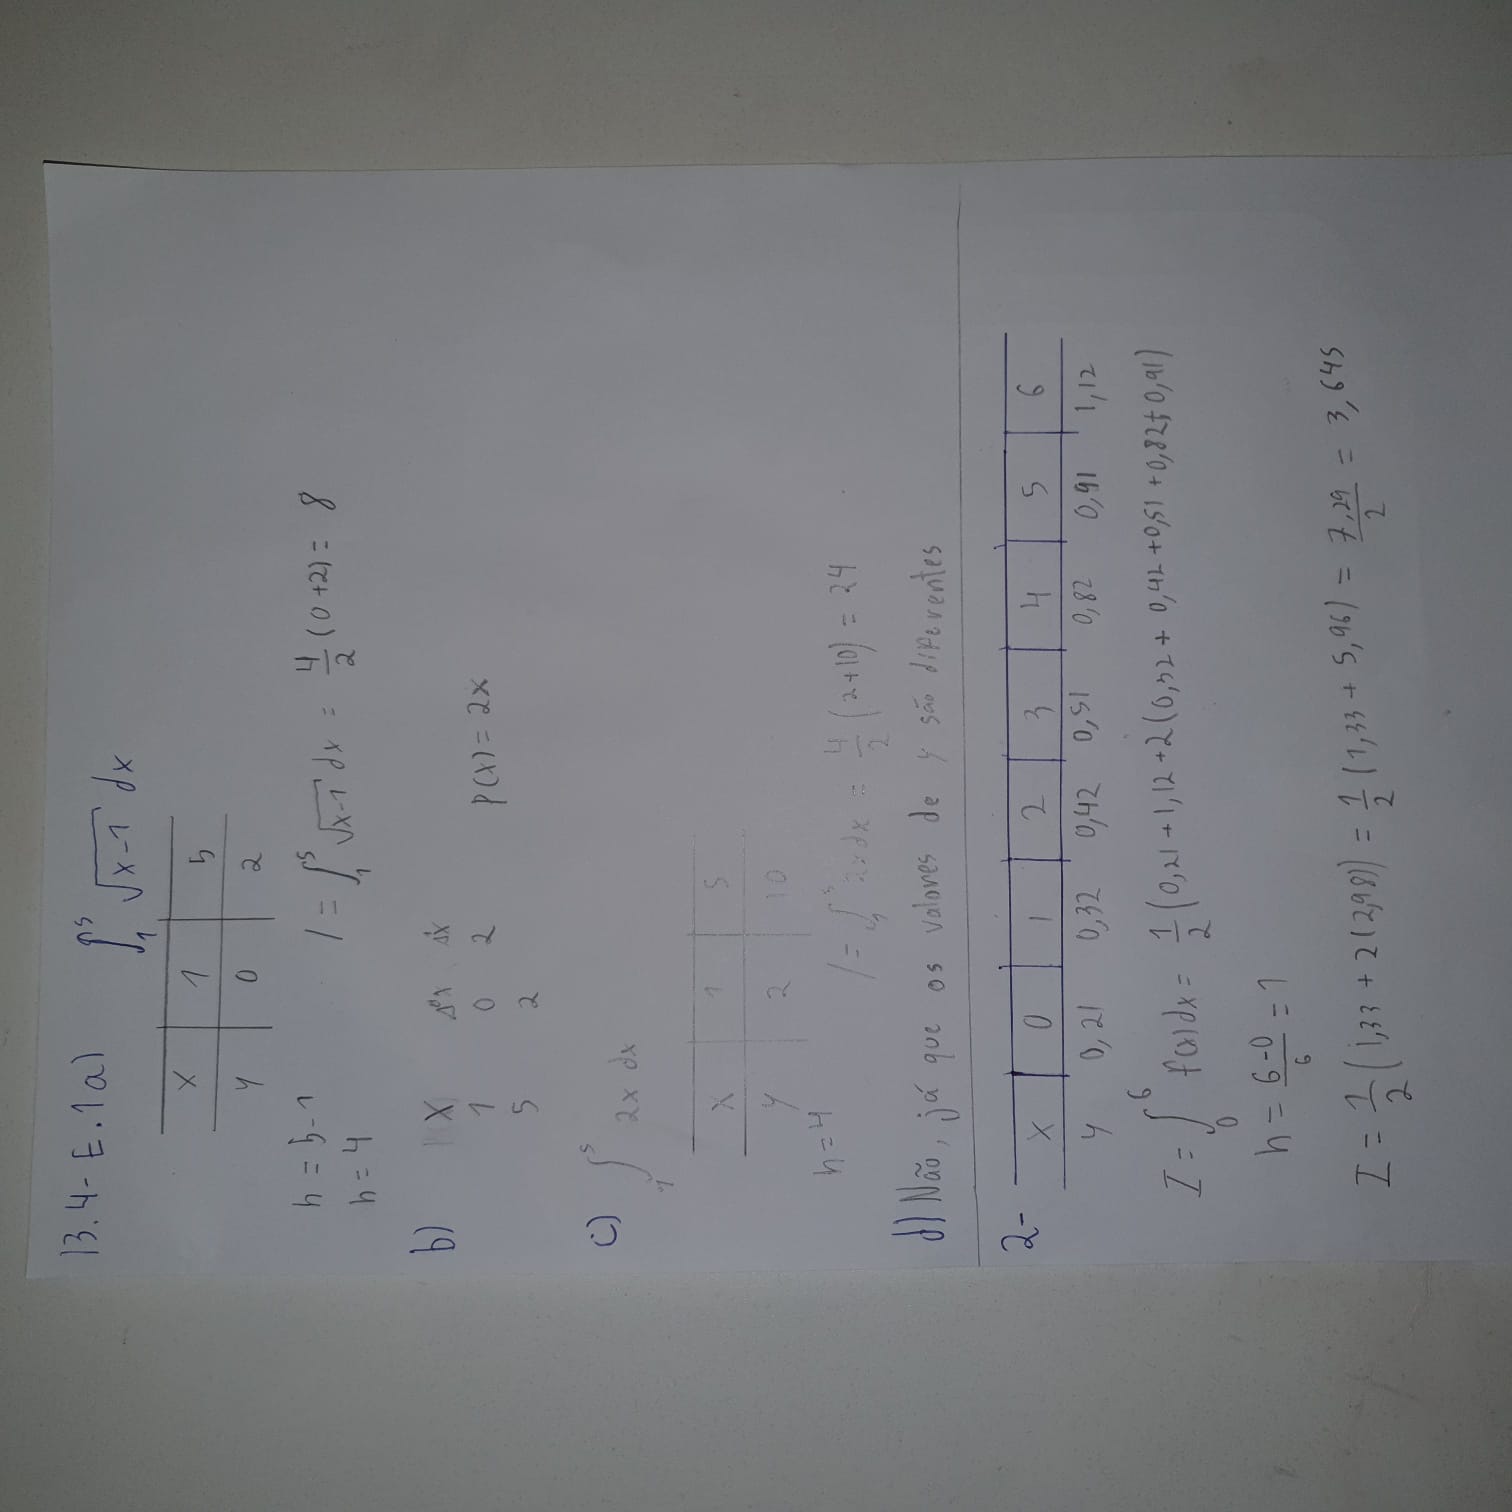 13.4- E.1a) ∫₁⁵ √x-1 dx
x 1 5
y 0 2
h = 5-1
h = 4
I = ∫₁⁵ √x-1 dx = 4/2 (0+2) = 8
b) x Δ⁰x Δ¹x
1 0 2
5 2
P(x) = 2x
c) ∫₁⁵ 2x dx
x 1 5
y 2 10
h=4
I = ∫₁⁵ 2x dx = 4/2 (2+10) = 24
d) Não, já que os valores de y são diferentes
2- x 0 1 2 3 4 5 6
y 0,21 0,32 0,42 0,51 0,82 0,91 1,12
I = ∫₀⁶ f(x)dx = 1/2 (0,21+1,12+2(0,32+ 0,42+0,51+0,82+0,91)
h = 6-0/6 = 1
I = 1/2 (1,33 + 2(2,98)) = 1/2 (1,33 + 5,96) = 7,29/2 = 3,645